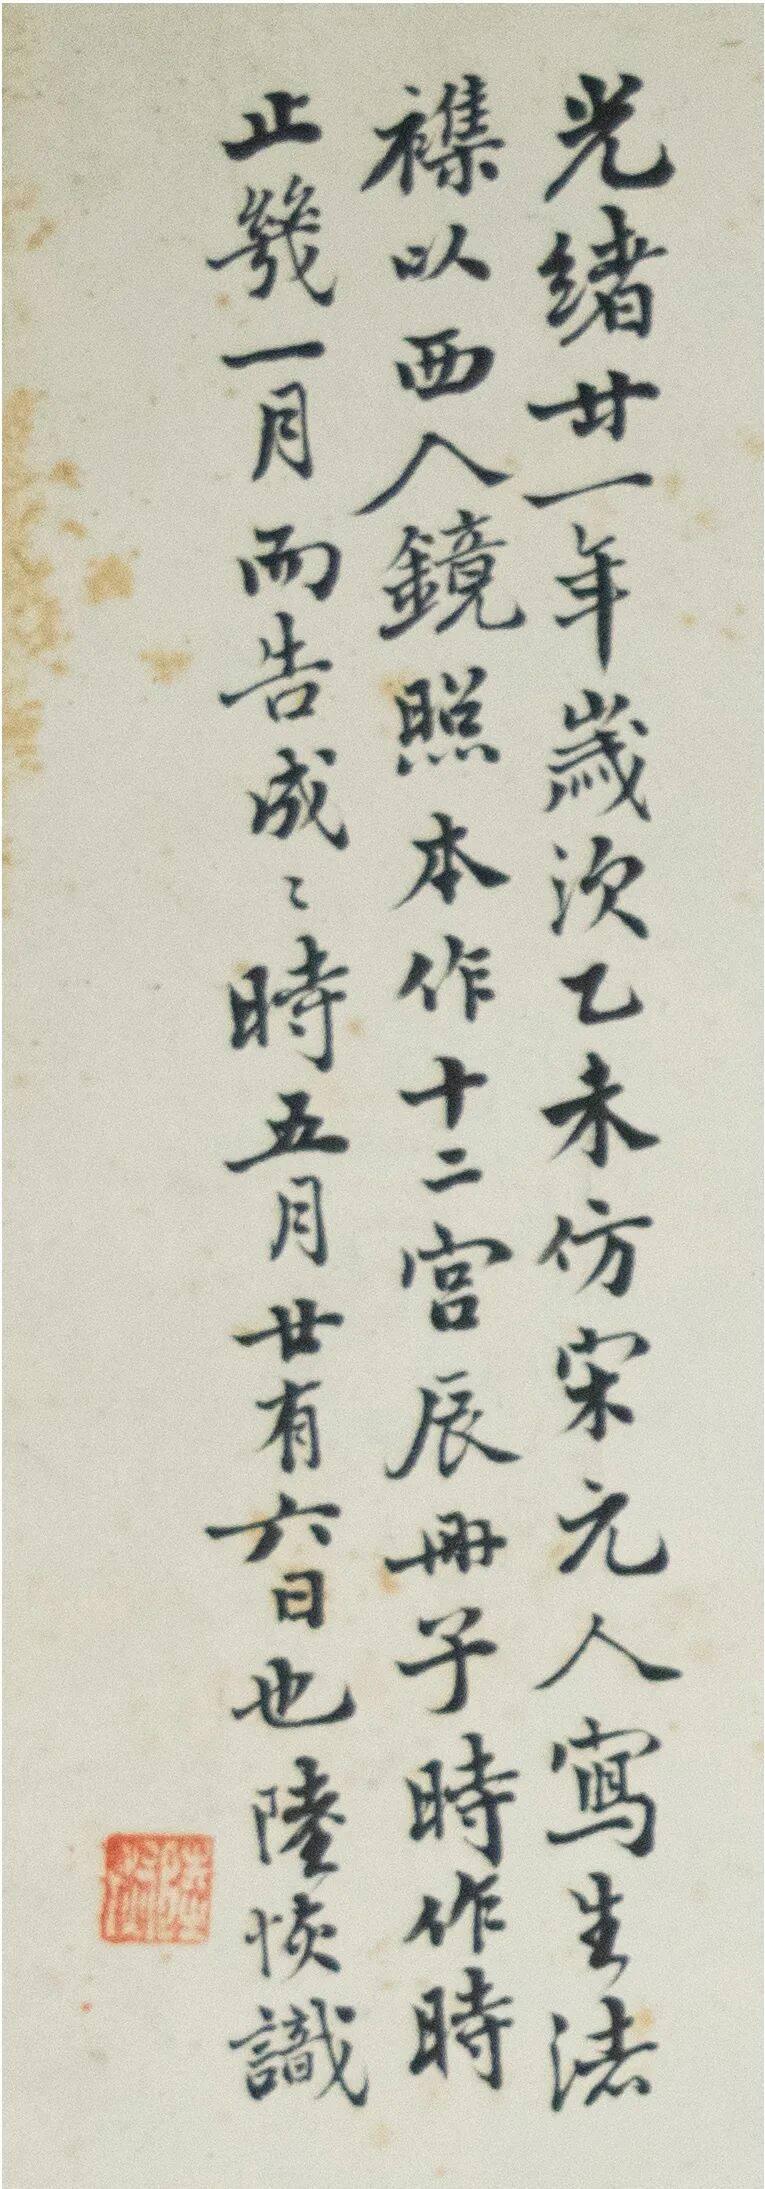 光緒廿一年歲次乙未仿宋元人寫生法
襍以西人鏡照本作十二宮辰冊子時作時
止幾一月而告成〻時五月廿有六日也陸恢識